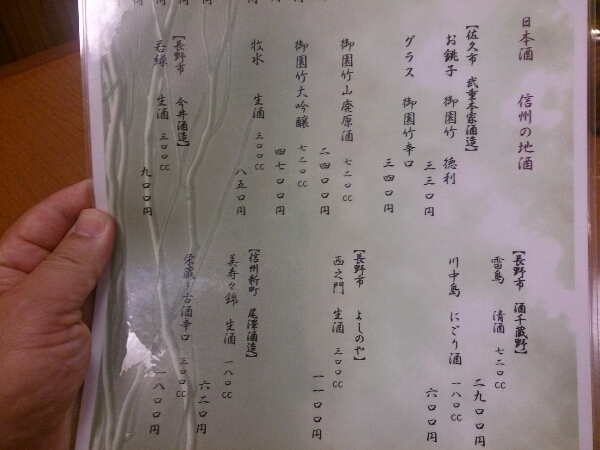 日本酒　信州の地酒
【佐久市　武重本家酒造】
お銚子　御園竹　徳利
三三〇円
グラス　御園竹辛口
三四〇円
御園竹山廃原酒　七二〇cc
二四〇〇円
御園竹大吟醸　七二〇cc
四七〇〇円
牧水　生酒　三〇〇cc
八五〇円
【長野市　今井酒造】
若緑　生酒　三〇〇cc
九〇〇円
【長野市　酒千蔵野】
雷鳥　清酒　七二〇cc
二九〇〇円
川中島　にごり酒　一八〇cc
六〇〇円
【長野市　よしのや】
西之門　生酒　三〇〇cc
一一〇〇円
【信州新町　尾澤酒造】
美寿々錦　生酒　一八〇cc
六二〇円
栄蔵　古酒辛口　三〇〇cc
一八〇〇円